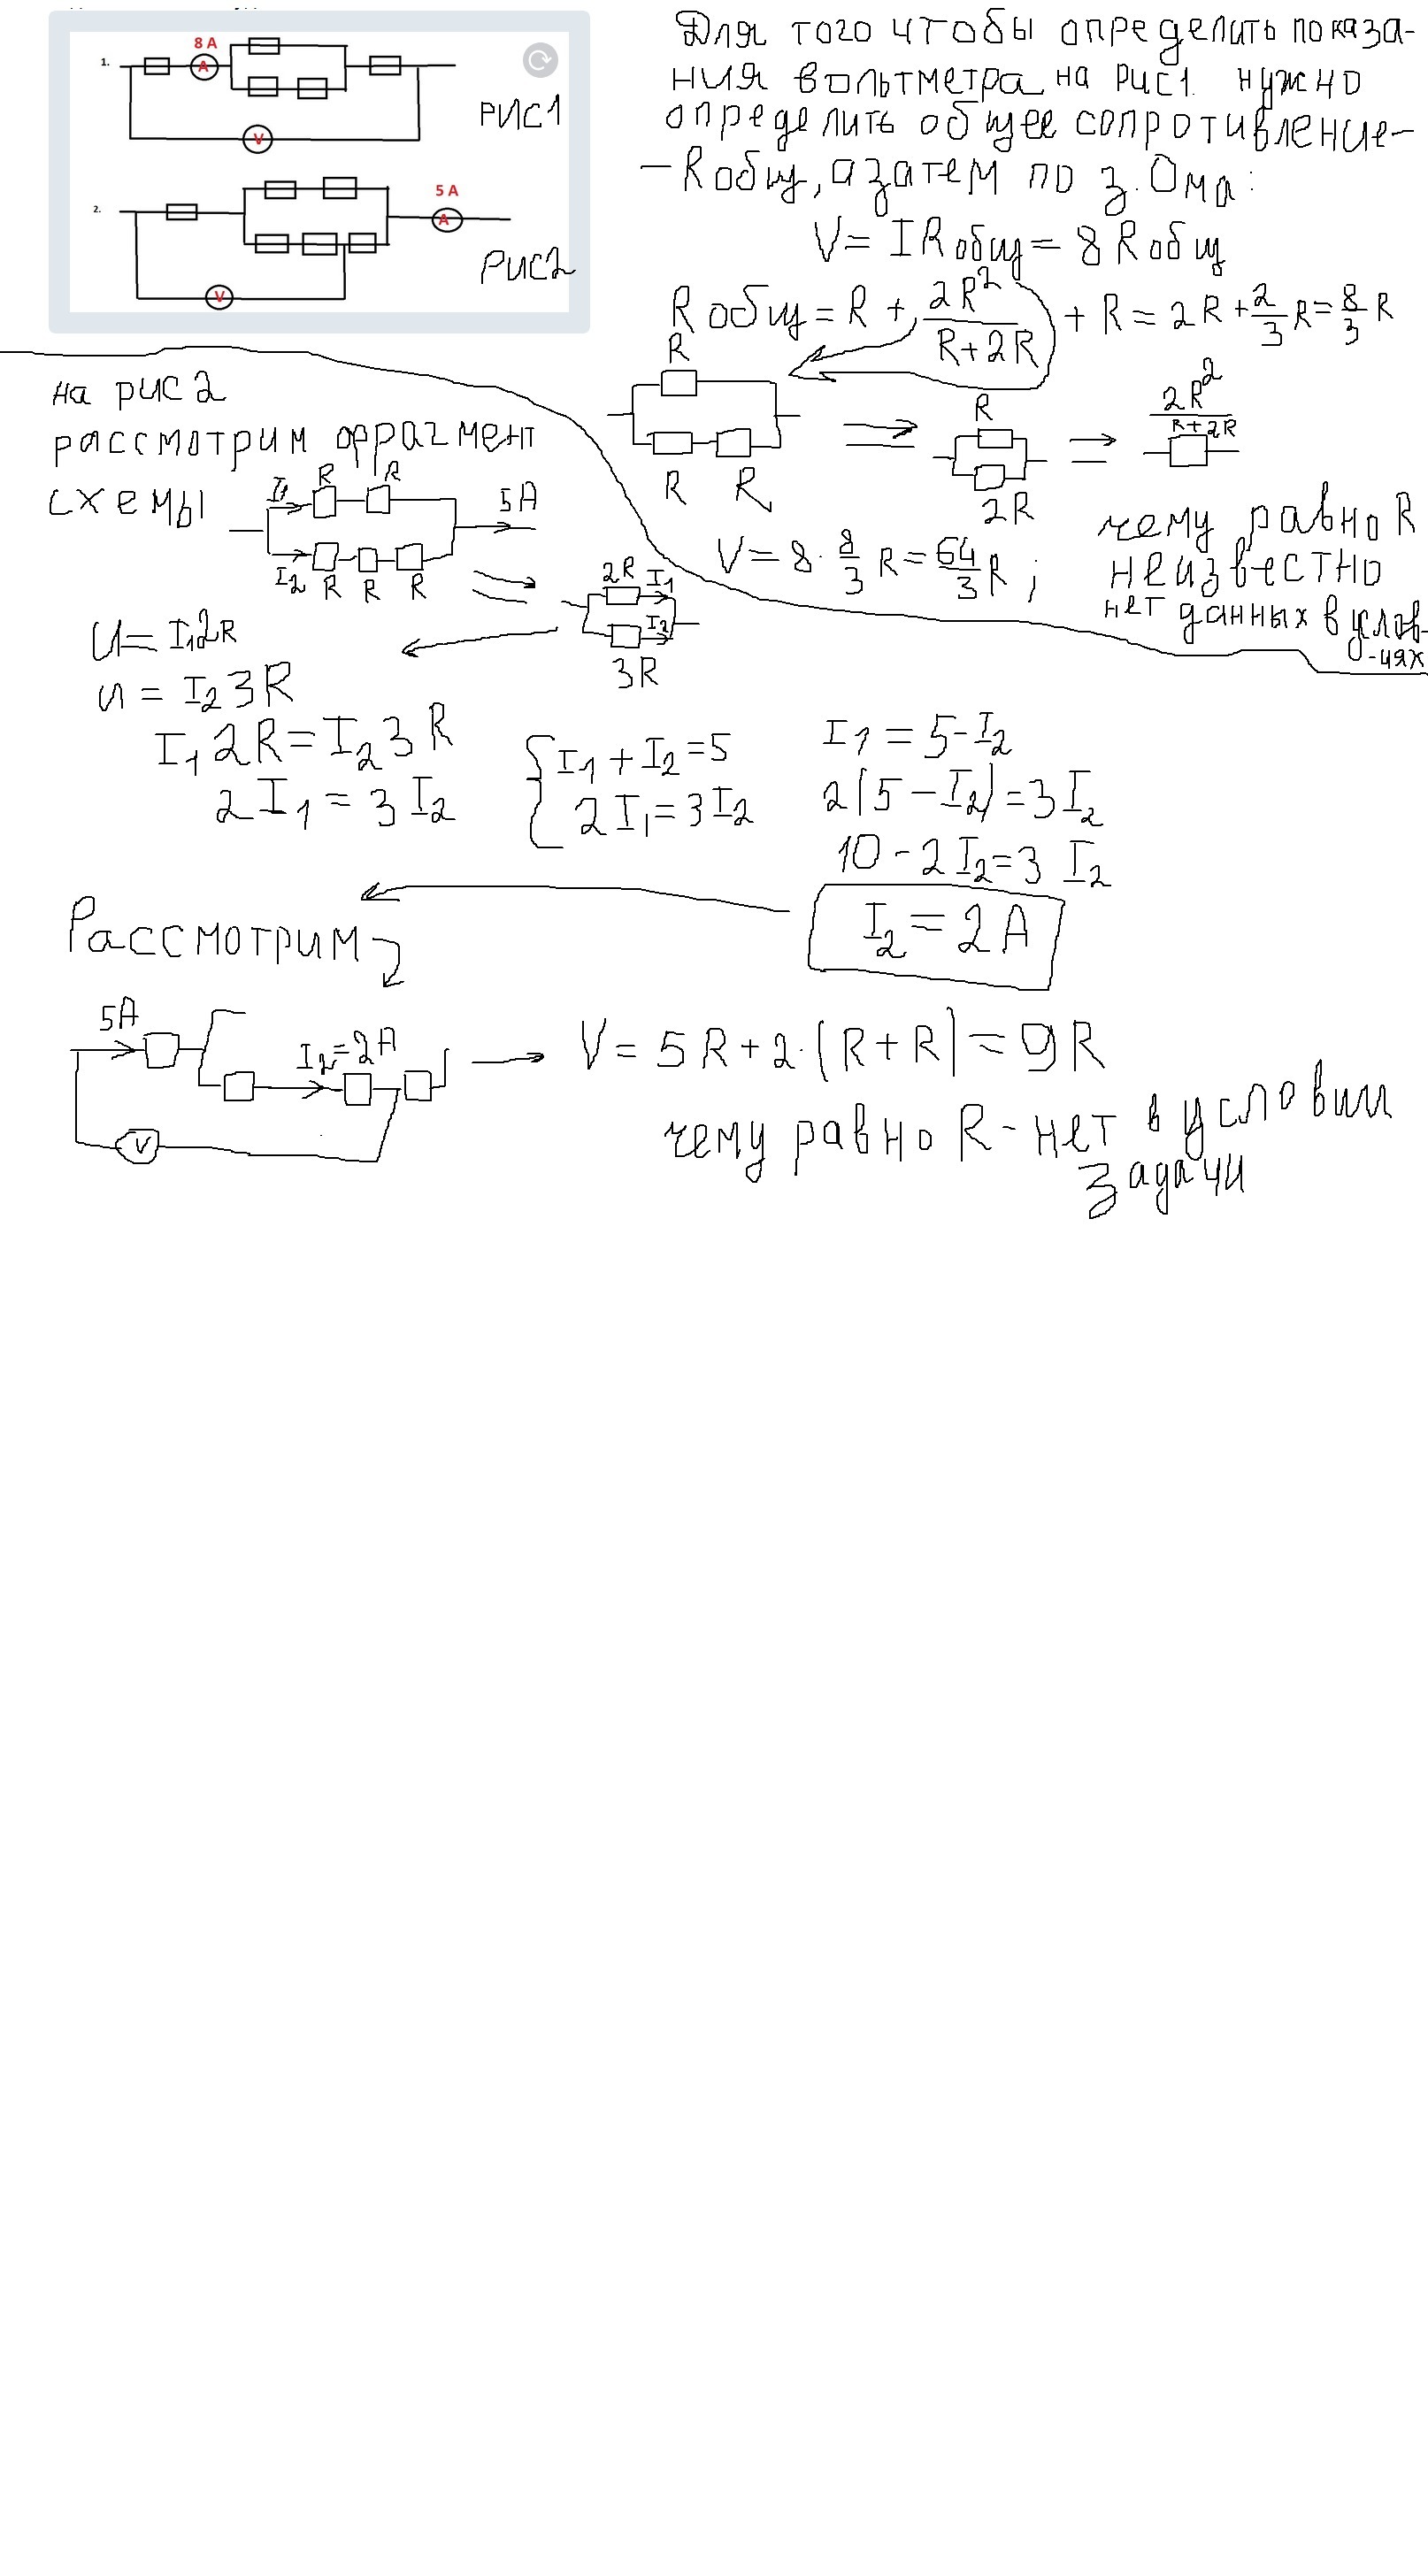 1.
8 A
A
V
РИС1
2.
5 A
A
V
РИС2
Для того чтобы определить показа-
ния вольтметра на рис1. нужно
определить общее сопротивление-
- Rобщ, а затем по з. Ома:
V = I Rобщ = 8 Rобщ
Rобщ = R + 2R²/(R+2R) + R = 2R + 2/3 R = 8/3 R
R
R R
R
2R
2R²/(R+2R)
V = 8 · 8/3 R = 64/3 R ;
чему равно R
неизвестно
нет данных в услов-
-иях
на рис 2
рассмотрим фрагмент
схемы
I₁ R R 5A
I₂ R R R
2R I₁
I₂
3R
U = I₁2R
u = I₂ 3R
I₁ 2R = I₂ 3R
2 I₁ = 3 I₂
{ I₁ + I₂ = 5
2 I₁ = 3 I₂
I₁ = 5 - I₂
2(5 - I₂) = 3 I₂
10 - 2 I₂ = 3 I₂
I₂ = 2 A
Рассмотрим
5A
I₂ = 2A
V
V = 5 R + 2·(R + R) = 9R
чему равно R - нет в условии
задачи